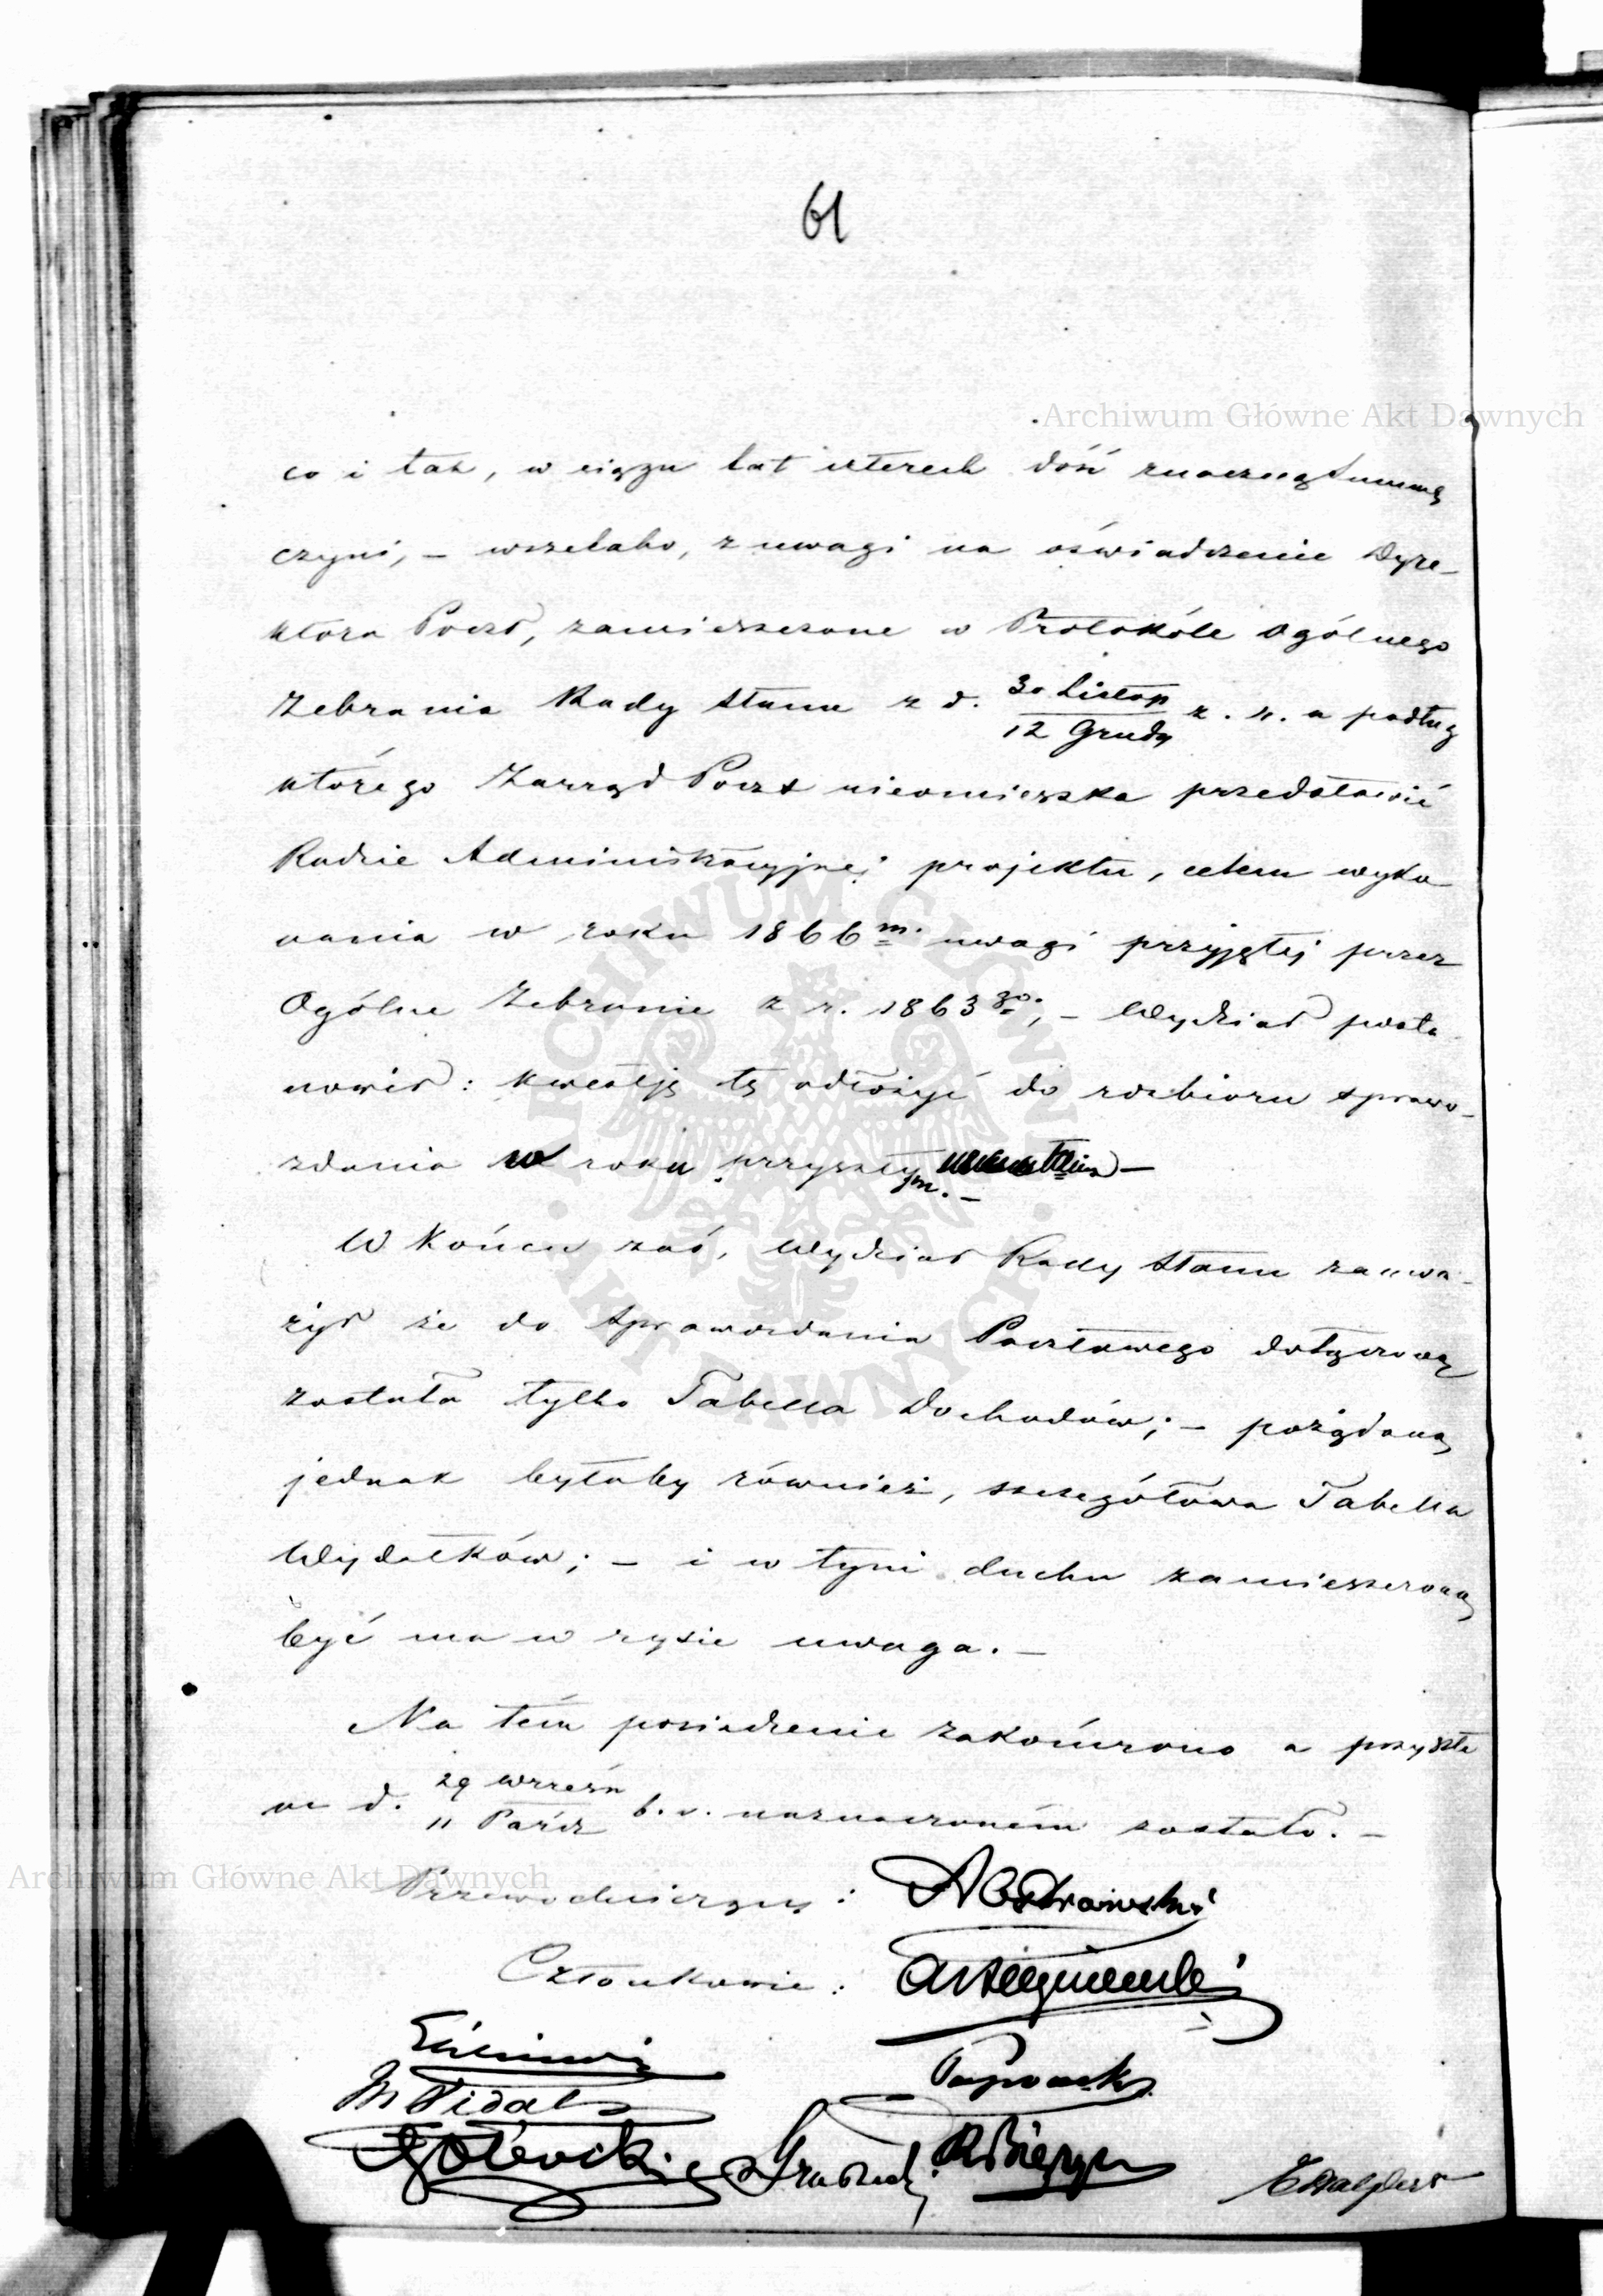 61
Archiwum Główne Akt Dawnych
co i tak, w ciągu lat czterech dość znaczną summę
czyni, – wszelako, z uwagi na oświadczenie Dyre-
ktora Poczt, zamieszczone w Protokóle Ogólnego
Zebrania Rady Stanu z d. 30 Listop / 12 Grudn z. r. a podług
którego Zarząd Poczt nieomieszka przedstawić
Radzie Administracyjnej projektu, celem wyko-
nania w roku 1866m. uwagi przyjętej przez
Ogólne Zebranie z r. 1863go; – Wydział posta-
nowił: kwestję tę odłożyć do rozbioru sprawo-
zdania w roku przyszłym. –
W końcu zaś, Wydział Rady Stanu zauwa-
żył że do Sprawozdania Pocztowego dołączoną
została tylko Tabella Dochodów; – pożądaną
jednak byłaby również, szczegółowa Tabella
Wydatków; – i w tym duchu zamieszczoną
być ma w rysie uwaga. –
Na tém posiedzenie zakończono a przyszłe
na d. 29 Wrześn / 11 Paźdz b. r. naznaczoném zostało. –
Archiwum Główne Akt Dawnych
Przewodniczący: A Ostrowski
Członkowie:
M Vidal
ARCHIWUM GŁÓWNE · AKT DAWNYCH ·